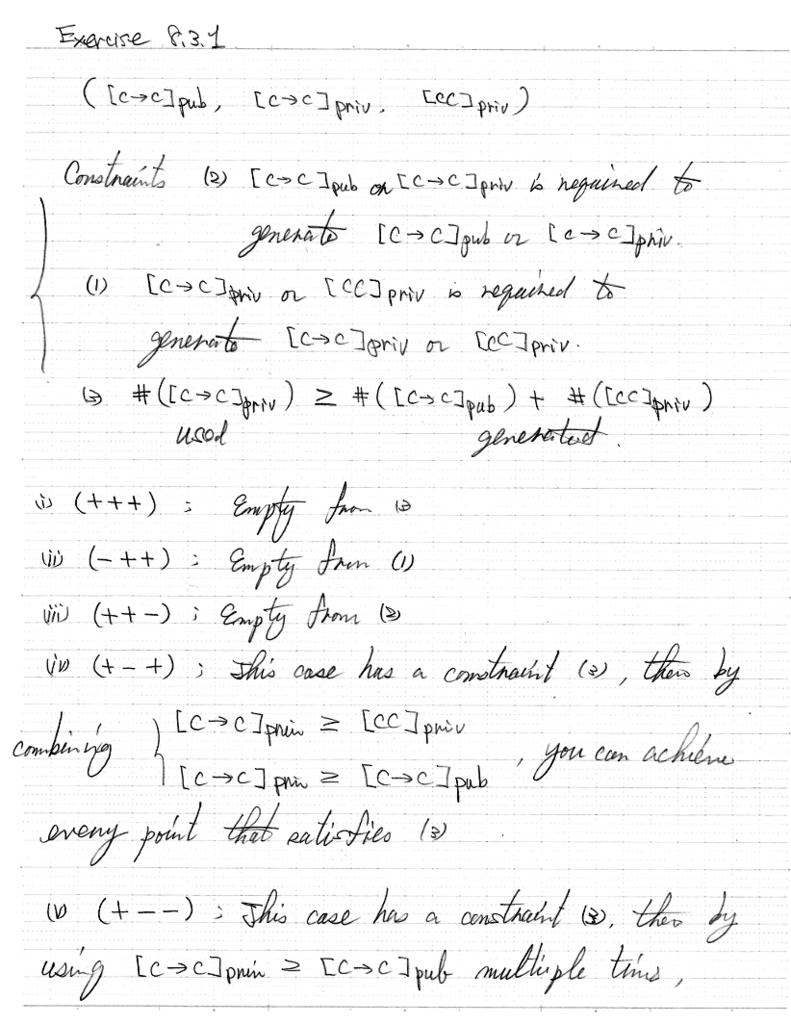 Exercise 8.3.1
([c→c]pub, [c→c]priv, [cc]priv)
Constraints (2) [c→c]pub or [c→c]priv is required to
generate [c→c]pub or [c→c]priv.
(1) [c→c]priv or [cc]priv is required to
generate [c→c]priv or [cc]priv.
(3) #([c→c]priv) ≥ #([c→c]pub) + #([cc]priv)
used generated.
(i) (+++) ; Empty from (3)
(ii) (-++) ; Empty from (1)
(iii) (++-) ; Empty from (2)
(iv) (+-+) ; This case has a constraint (3), then by
combining { [c→c]priv ≥ [cc]priv
[c→c]priv ≥ [c→c]pub , you can achieve
every point that satisfies (3)
(v) (+--) ; This case has a constraint (3), then by
using [c→c]priv ≥ [c→c]pub multiple tims,